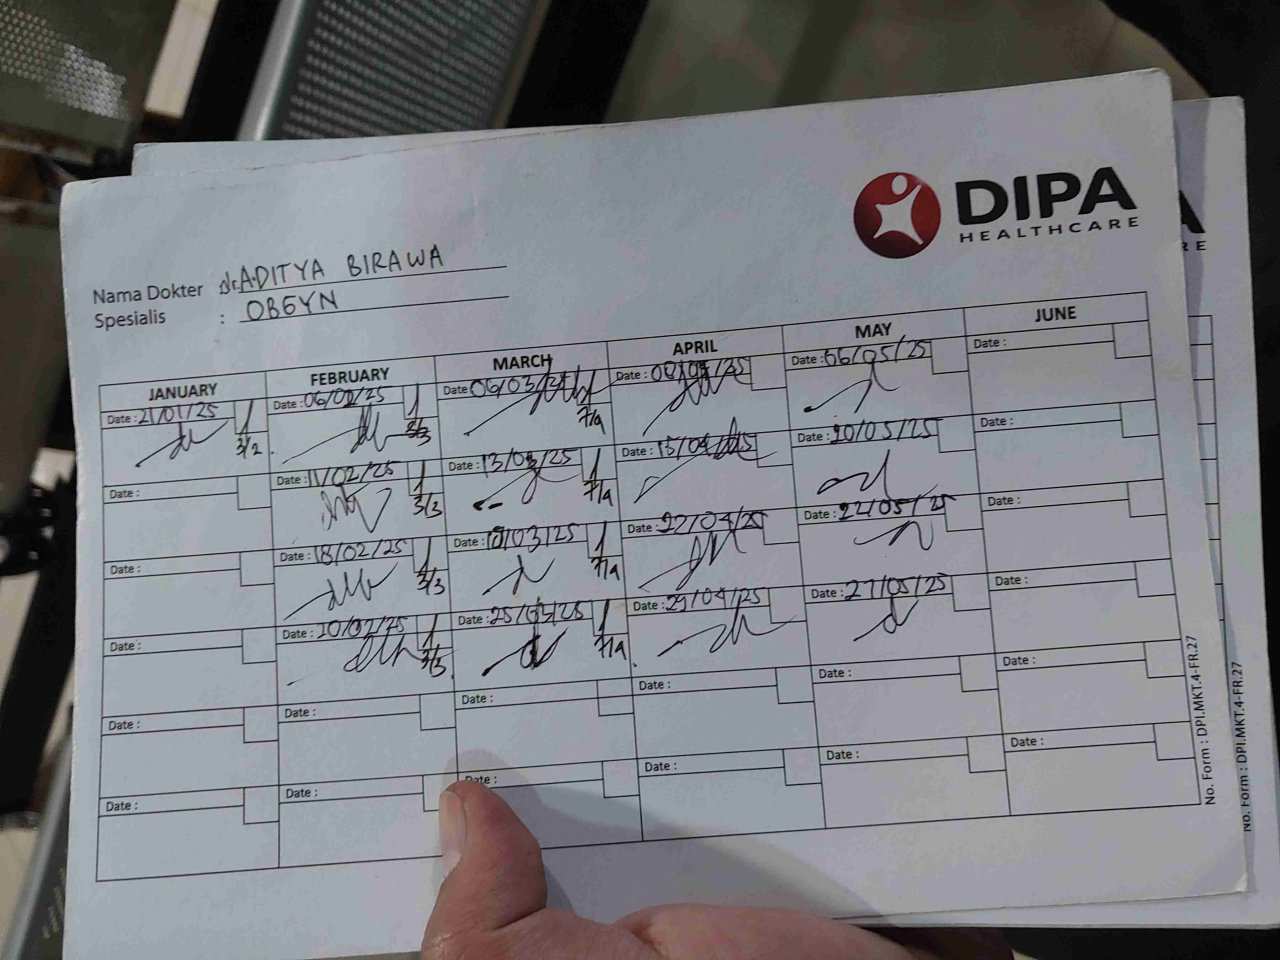 DIPA
HEALTHCARE
Nama Dokter dr. ADITYA BIRAWA
Spesialis : OBGYN
JANUARY FEBRUARY MARCH APRIL MAY JUNE
Date : 21/01/25 1 Date : 06/02/25 1 Date : 06/03/25 Date : Date : 06/05/25 Date :
3/2 3/3 7/4
Date : Date : 11/02/25 1 Date : 13/03/25 1 Date : 15/04/25 Date : 20/05/25 Date :
3/3 7/4
Date : Date : 18/02/25 1 Date : 18/03/25 1 Date : 22/04/25 Date : 22/05/25 Date :
3/3 7/4
Date : Date : 20/02/25 1 Date : 25/03/25 1 Date : 29/04/25 Date : 27/05/25 Date :
3/3 7/4
Date : Date : Date : Date : Date : Date :
Date : Date : Date : Date : Date : Date :
No. Form : DPI.MKT.4-FR.27
A
RE
No. Form : DPI.MKT.4-FR.27